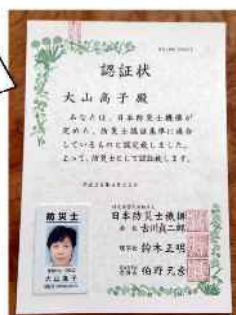 認証状
大山高子殿
あなたは、日本防災士機構が
定めた、防災士認証基準に適合
しているものと認定致しました。
よって、防災士として認証致します。
防災士
大山高子
日本防災士機構
会長 古川貞二郎
理事長 鈴木正明
伯野元彦